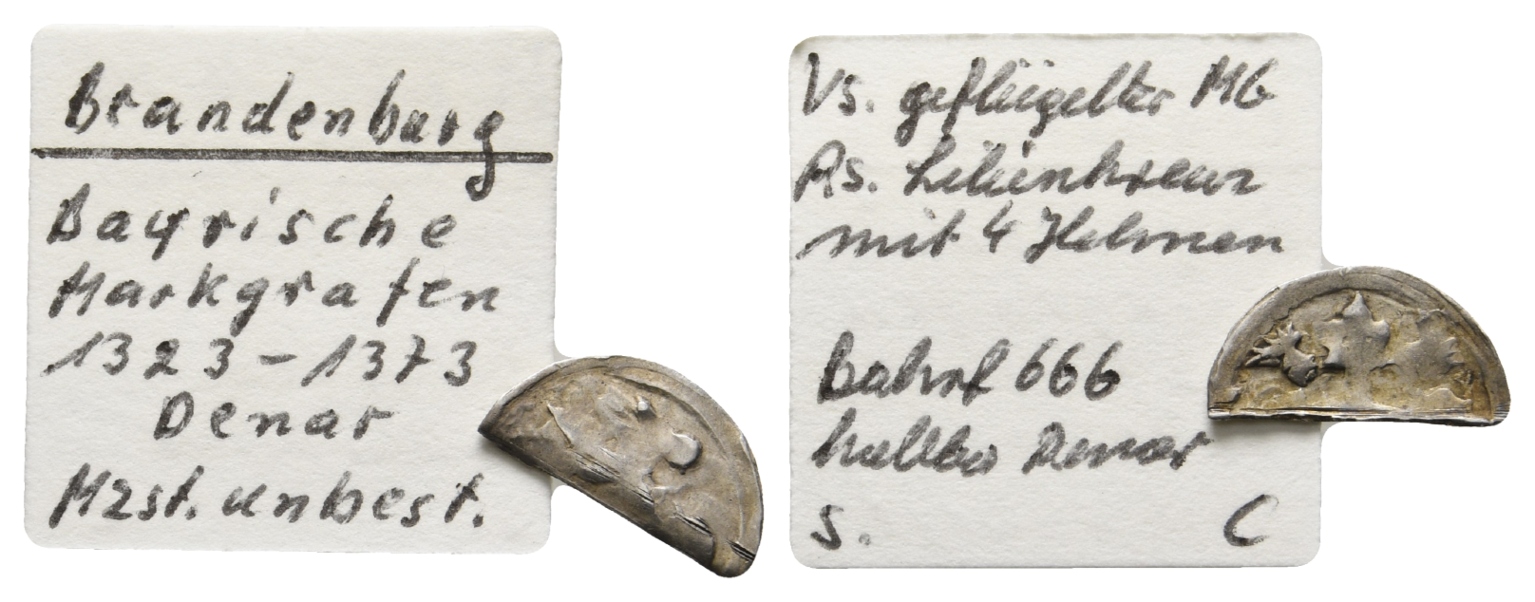 Brandenburg
Bayrische
Markgrafen
1323-1373
Denar
Mzst. unbest.
Vs. geflügelter MG
Rs. Lilienkreuz
mit 4 Helmen
Bahrf 666
halber Denar
S. C